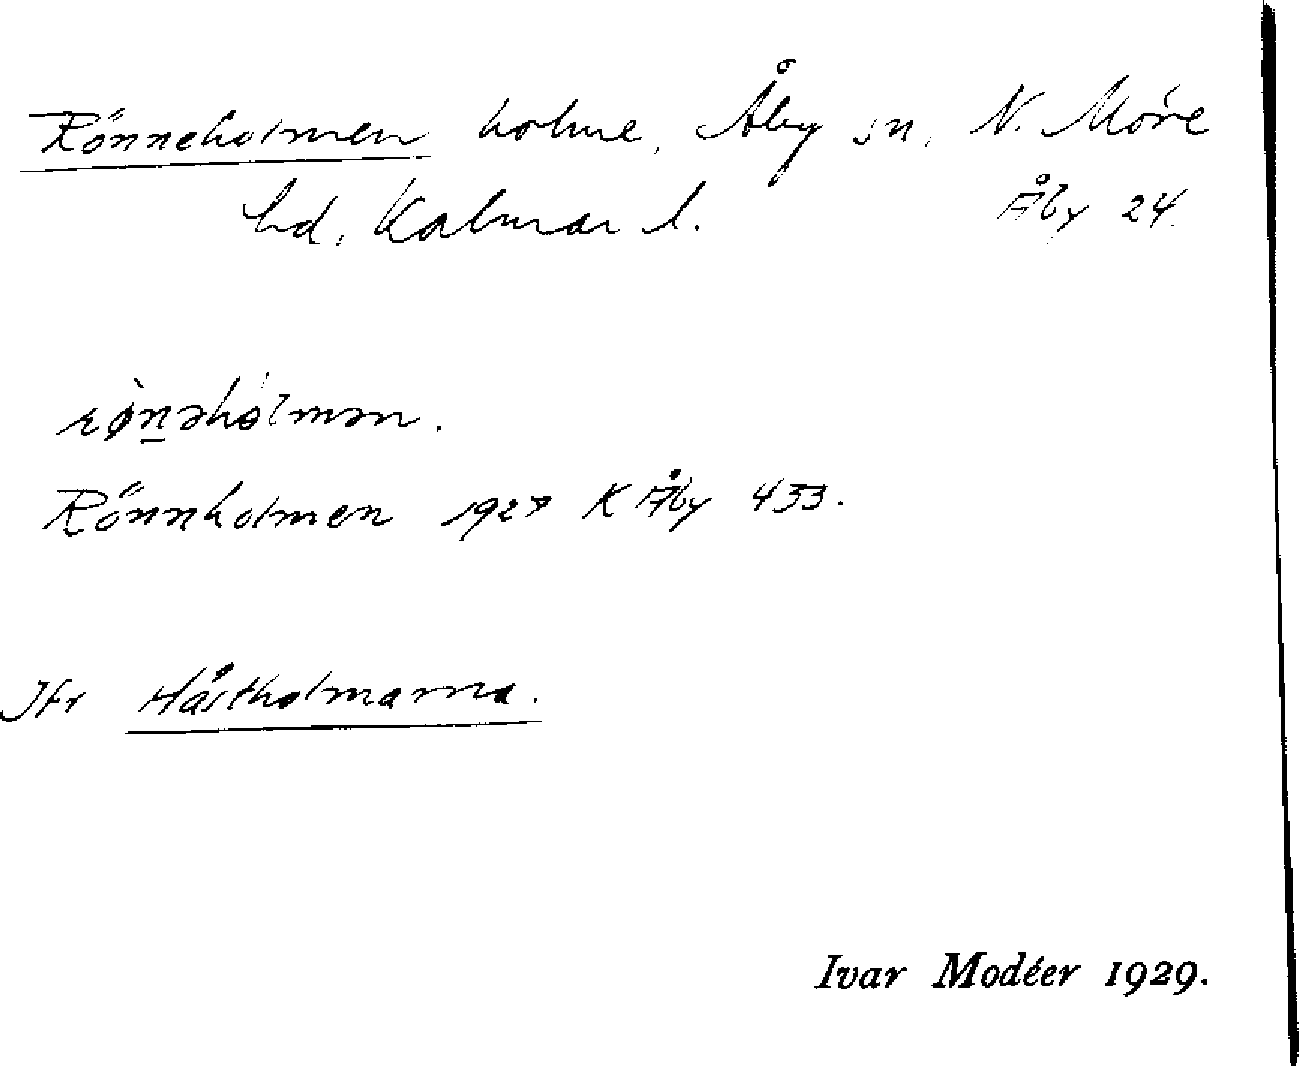 Rönneholmen holme, Åby sn, N. Möre
hd, Kalmar l. Åby 24.
rø̀n̲əhól mən.
Rönnholmen 1927 K Åby 433.
Jfr Håstholmarna.
Ivar Modéer 1929.